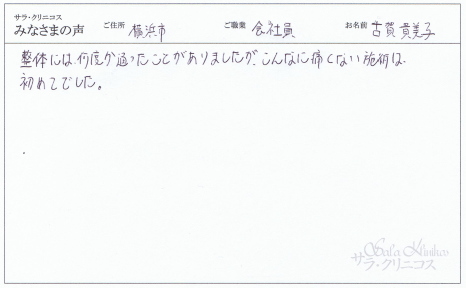 サラ・クリニコス
みなさまの声 ご住所 横浜市 ご職業 会社員 お名前 古賀貴美子
整体には何度か通ったことがありましたが、こんなに痛くない施術は
初めてでした。
Sala Klinikos
サラ・クリニコス